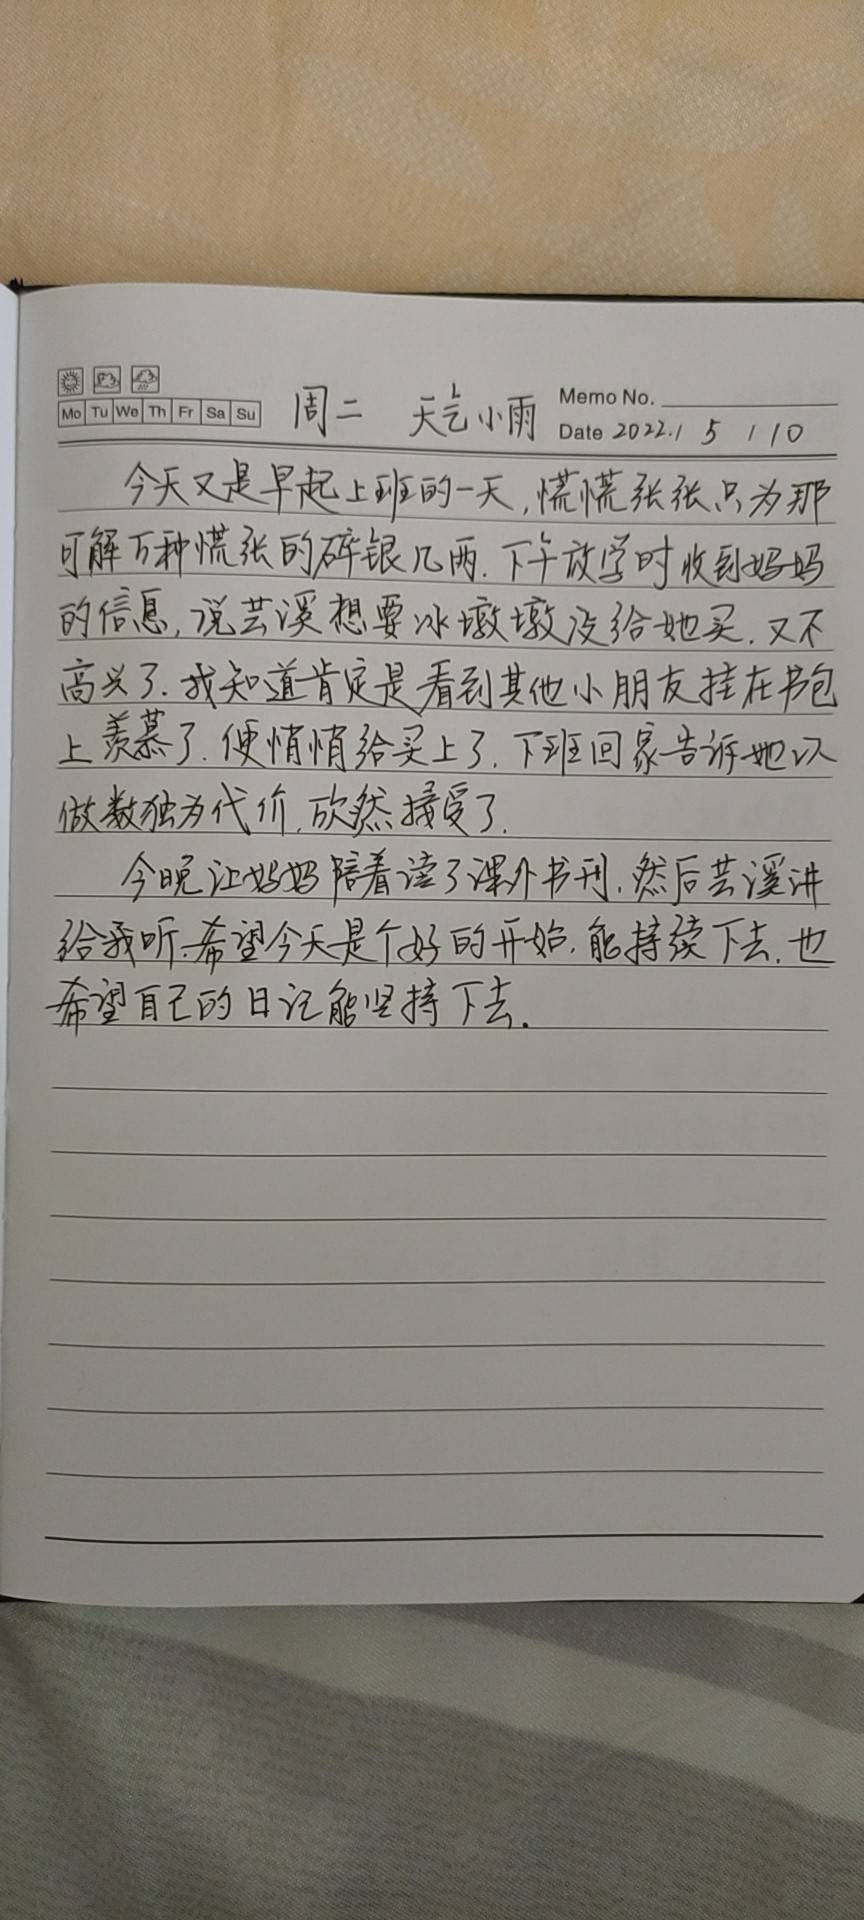 Mo Tu We Th Fr Sa Su 周二 天气小雨 Memo No.
Date 2022.1 5 / 10
今天又是早起上班的一天,慌慌张张只为那
可解万种慌张的碎银几两.下午放学时收到妈妈
的信息,说芸溪想要冰墩墩没给她买.又不
高兴了.我知道肯定是看到其他小朋友挂在书包
上羡慕了.便悄悄给买上了.下班回家告诉她以
做数独为代价.欣然接受了.
今晚让妈妈陪着读了课外书刊.然后芸溪讲
给我听.希望今天是个好的开始.能持续下去.也
希望自己的日记能坚持下去.